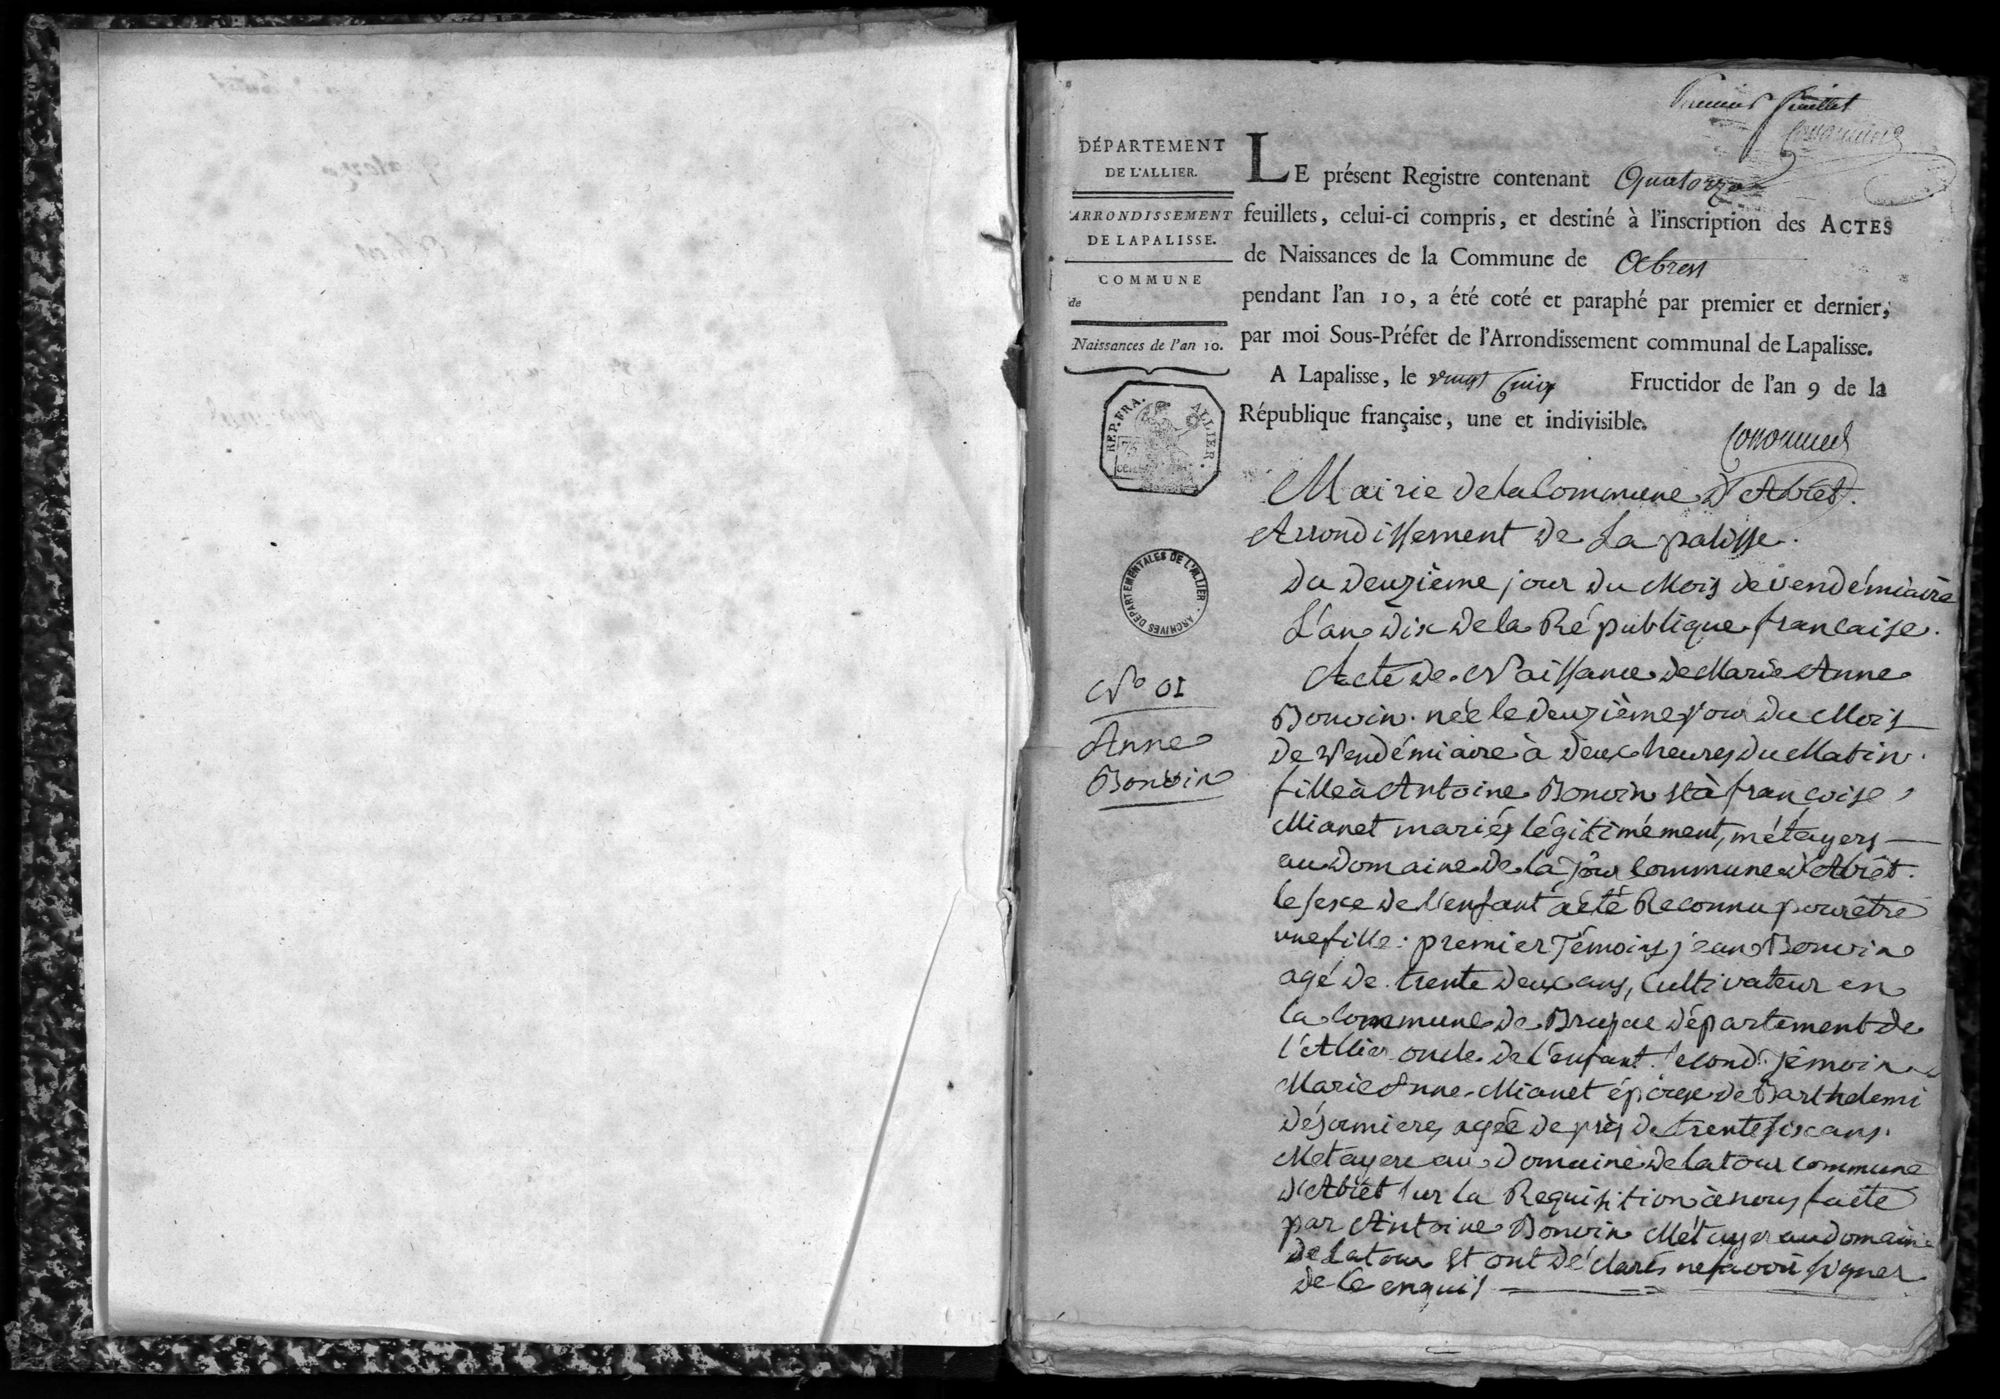 Premier feuillet
DÉPARTEMENT
DE L'ALLIER.
ARRONDISSEMENT
DE LAPALISSE.
COMMUNE
de
Naissances de l'an 10.
LE présent Registre contenant Quatorze
feuillets, celui-ci compris, et destiné à l'inscription des ACTES
de Naissances de la Commune de Abrest
pendant l'an 10, a été coté et paraphé par premier et dernier,
par moi Sous-Préfet de l'Arrondissement communal de Lapalisse.
A Lapalisse, le vingt cinq Fructidor de l'an 9 de la
République française, une et indivisible.
REP. FRA. ALLIER.
75
cen
ARCHIVES DÉPARTEMENTALES DE L'ALLIER
Mairie de la Commune d'Abret.
Arrondissement de La palisse.
du deuzième jour du Mois de vendémiaire
L'an dix de la République francaise.
N° 01
Anne
Bonvin
Acte de Naissance de Marie Anne
Bonvin. née le deuzième jour du Mois
de Vendémiaire à deux heures du Matin.
fille à Antoine Bonvin et à françoise
Mianet mariés légitimément, métayers
au domaine de la Tour commune d'Abrêt.
le sexe de l'enfant a été Reconnu pour être
une fille. premier Témoins jean Bonvin
agé de trente deux ans, Cultivateur en
la commune de département de
l'Allier oncle de l'enfant. second témoin
Marie Anne Mianet épouse de Barthelemi
désormieres agée de près de trente six ans.
Metayere au domaine de la tour commune
d'Abrêt sur la Requisition à nous faite
par Antoine Bonvin Métayer au domaine
de la tour et ont déclarés ne savoir signer
de ce enquis